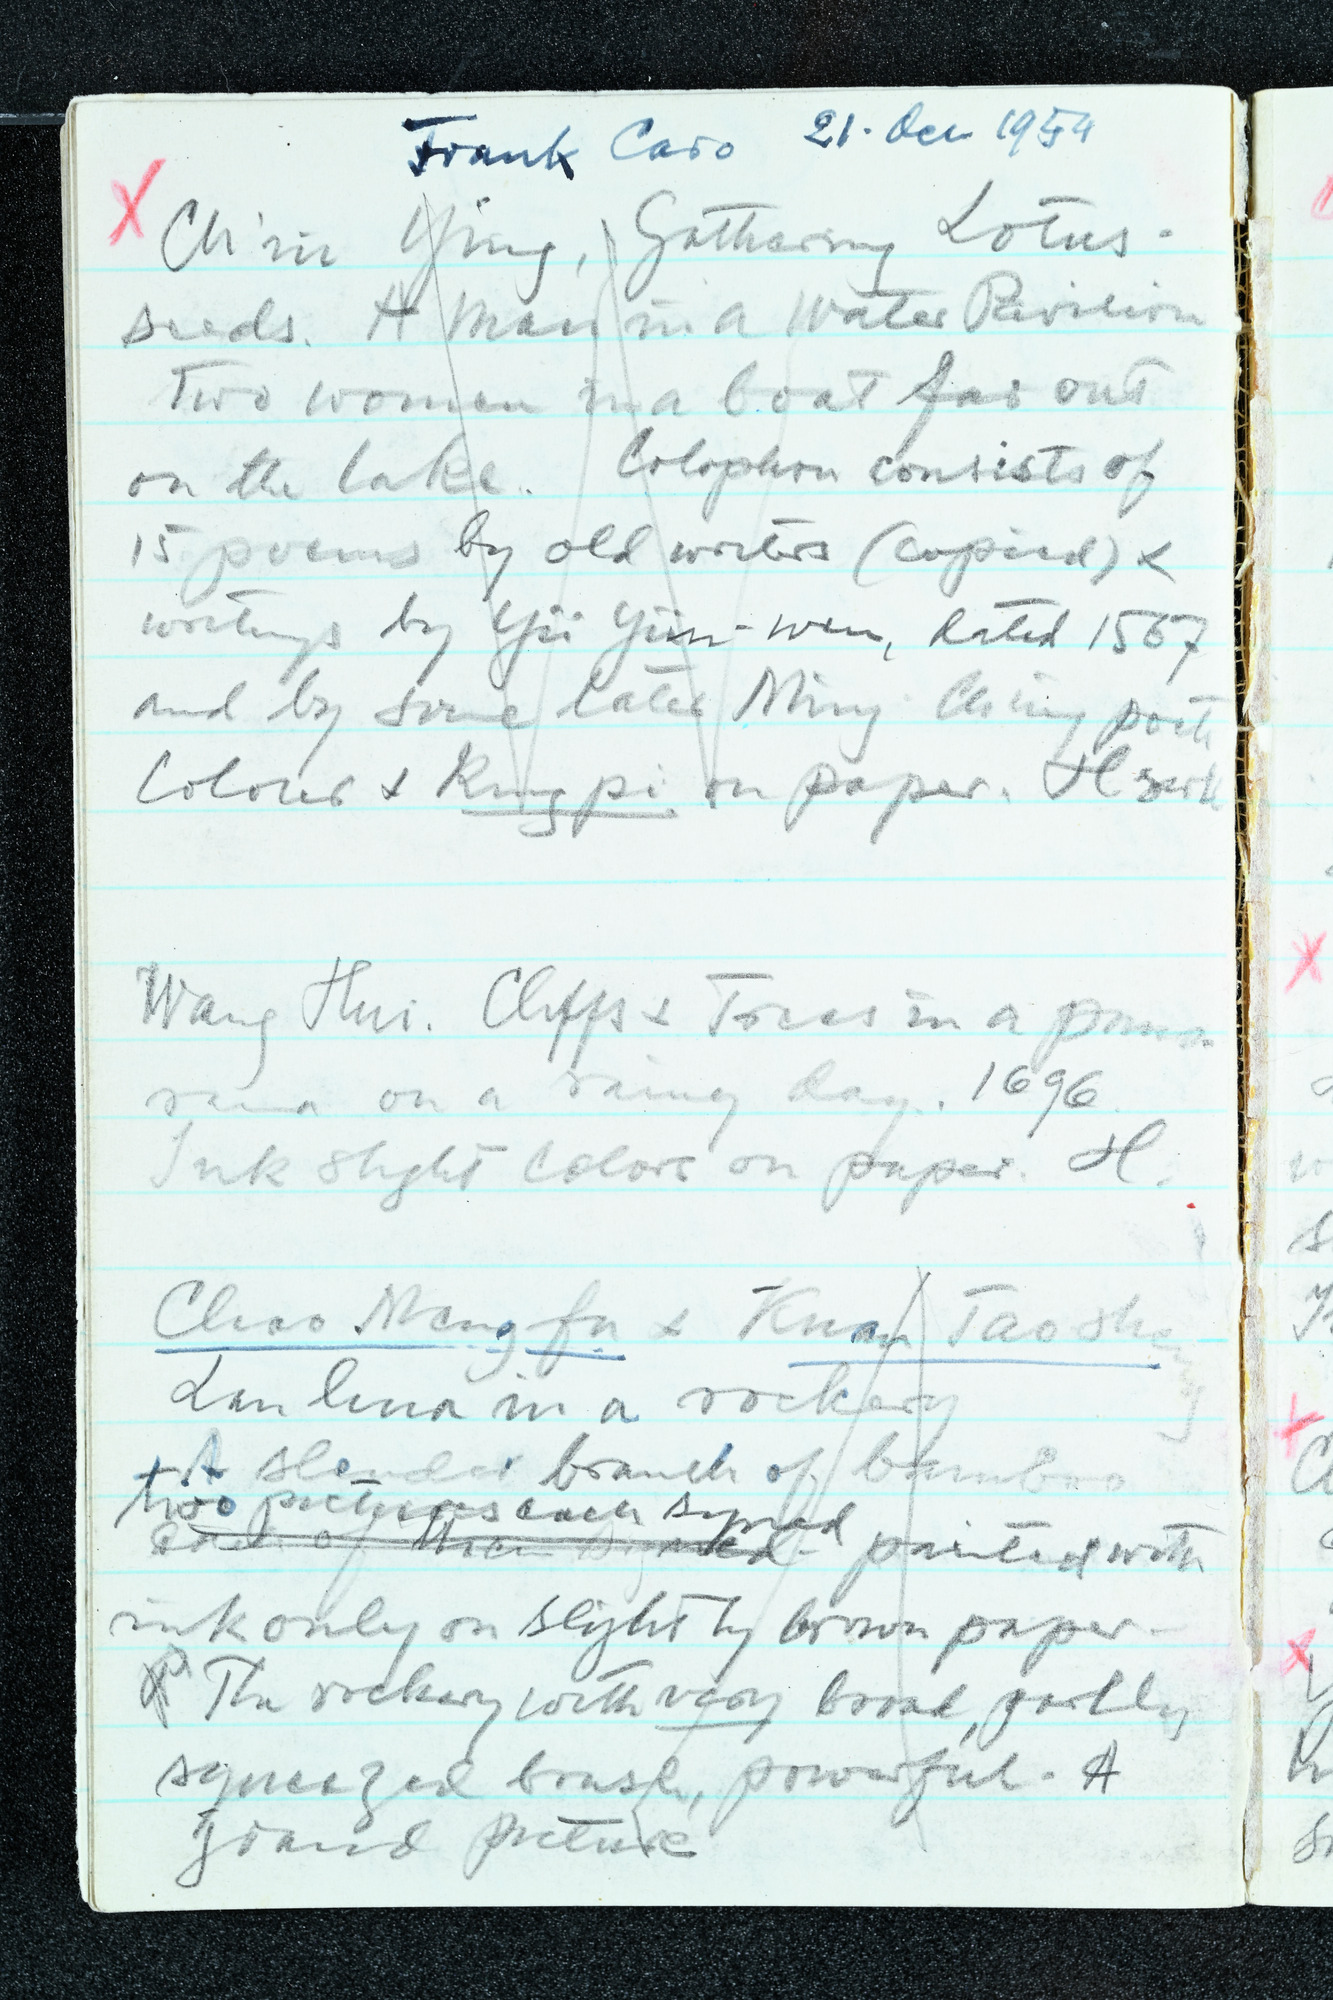 Frank Caro 21. Dec 1954
X Ch'iu Ying, Gathering Lotus-
seeds. A Man in a Water Pavilion
Two women in a boat far out
on the lake. Colophon consists of
15 poems by old writers (copied) &
writings by Yü Yün-wen, dated 1567
and by some later Ming Ch'ing poets
Colour & Kung pi on paper. H
Wang Hui. Cliffs & Trees in a pano-
rama on a rainy day. 1696
Ink slight colors on paper. H.
Chao Meng fu & Kuan Tao sheng
Lan hua in a rockery
A slender branch of bamboo
two pictures each signed
Each of them signed - painted with
ink only on slightly brown paper -
The rockery with very broad, partly
squeezed brush, powerful - A
grand picture